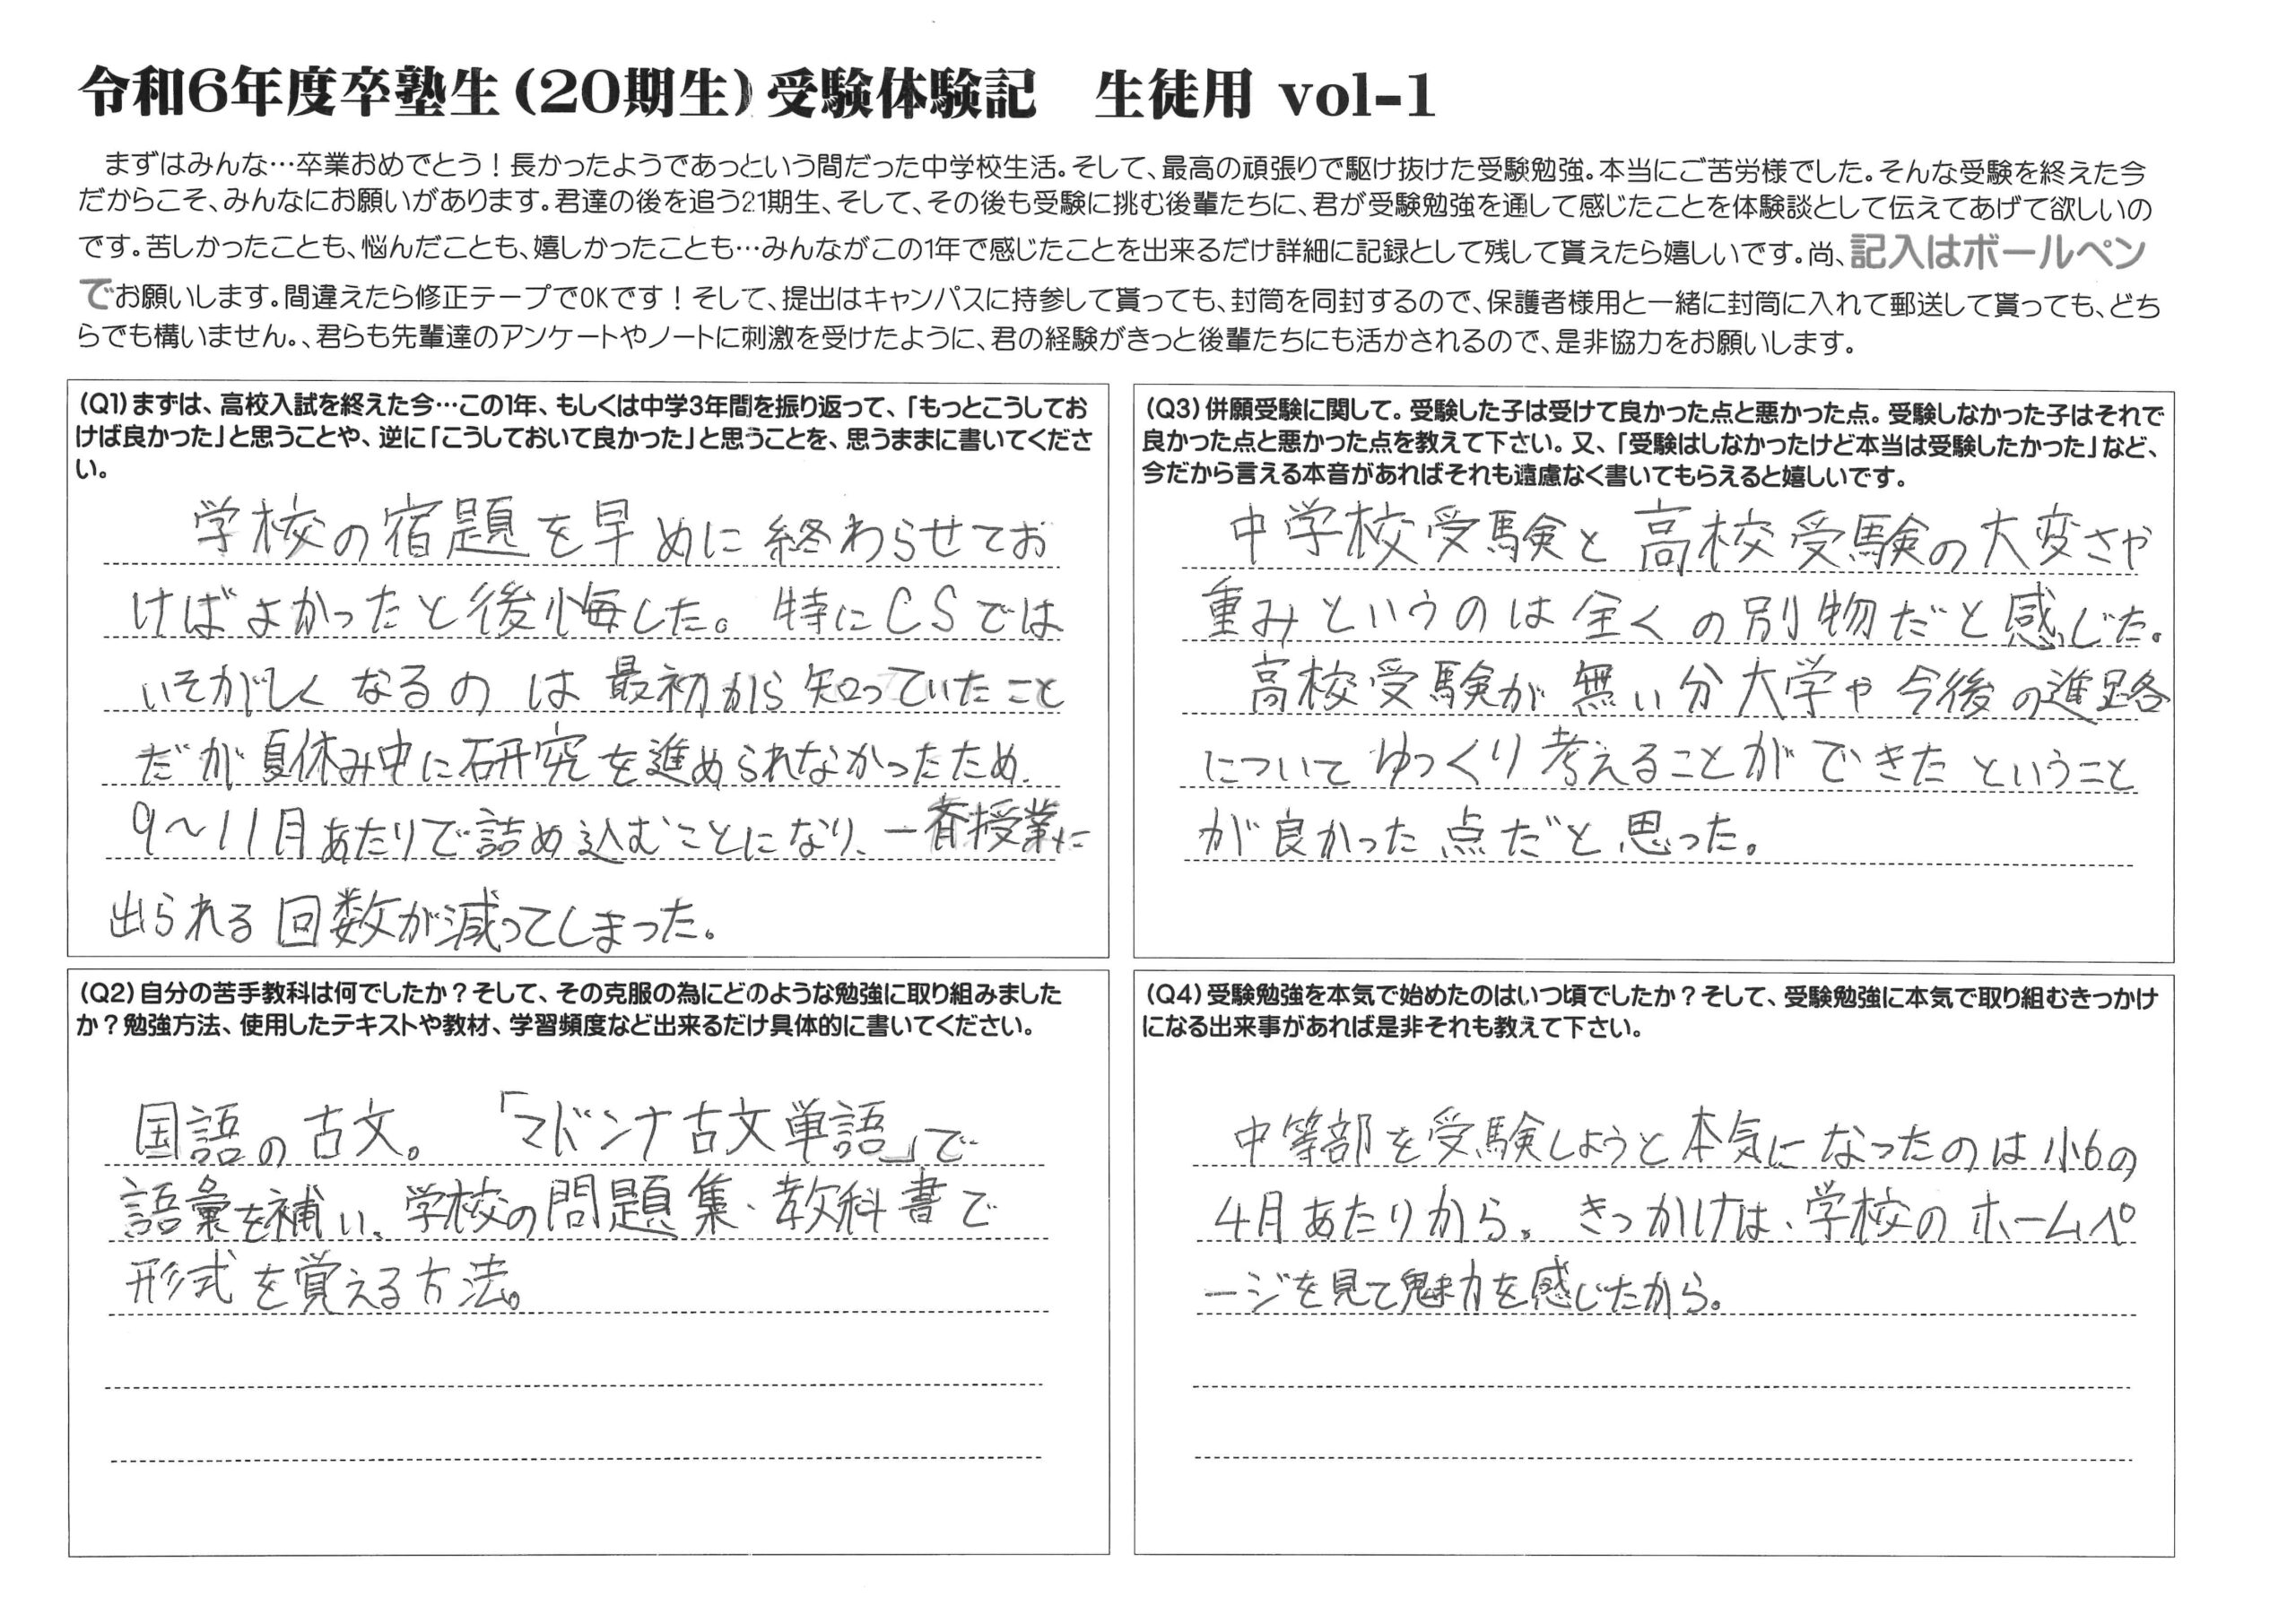 令和6年度卒塾生(20期生)受験体験記　生徒用 vol-1
まずはみんな…卒業おめでとう！長かったようであっという間だった中学校生活。そして、最高の頑張りで駆け抜けた受験勉強。本当にご苦労様でした。そんな受験を終えた今
だからこそ、みんなにお願いがあります。君達の後を追う21期生、そして、その後も受験に挑む後輩たちに、君が受験勉強を通して感じたことを体験談として伝えてあげて欲しいの
です。苦しかったことも、悩んだことも、嬉しかったことも…みんながこの1年で感じたことを出来るだけ詳細に記録として残して貰えたら嬉しいです。尚、記入はボールペン
でお願いします。間違えたら修正テープでOKです！そして、提出はキャンパスに持参して貰っても、封筒を同封するので、保護者様用と一緒に封筒に入れて郵送して貰っても、どち
らでも構いません。、君らも先輩達のアンケートやノートに刺激を受けたように、君の経験がきっと後輩たちにも活かされるので、是非協力をお願いします。
(Q1)まずは、高校入試を終えた今…この1年、もしくは中学3年間を振り返って、「もっとこうしてお
けば良かった」と思うことや、逆に「こうしておいて良かった」と思うことを、思うままに書いてくださ
い。
学校の宿題を早めに終わらせてお
けばよかったと後悔した。特にCSでは
いそがしくなるのは最初から知っていたこと
だが夏休み中に研究を進められなかったため、
9～11月あたりで詰め込むことになり、一斉授業に
出られる回数が減ってしまった。
(Q2)自分の苦手教科は何でしたか？そして、その克服の為にどのような勉強に取り組みました
か？勉強方法、使用したテキストや教材、学習頻度など出来るだけ具体的に書いてください。
国語の古文。「マドンナ古文単語」で
語彙を補い、学校の問題集・教科書で
形式を覚える方法。
(Q3)併願受験に関して。受験した子は受けて良かった点と悪かった点。受験しなかった子はそれで
良かった点と悪かった点を教えて下さい。又、「受験はしなかったけど本当は受験したかった」など、
今だから言える本音があればそれも遠慮なく書いてもらえると嬉しいです。
中学校受験と高校受験の大変さや
重みというのは全くの別物だと感じた。
高校受験が無い分大学や今後の進路
についてゆっくり考えることができたということ
が良かった点だと思った。
(Q4)受験勉強を本気で始めたのはいつ頃でしたか？そして、受験勉強に本気で取り組むきっかけ
になる出来事があれば是非それも教えて下さい。
中等部を受験しようと本気になったのは小6の
4月あたりから。きっかけは、学校のホームペ
ージを見て魅力を感じたから。